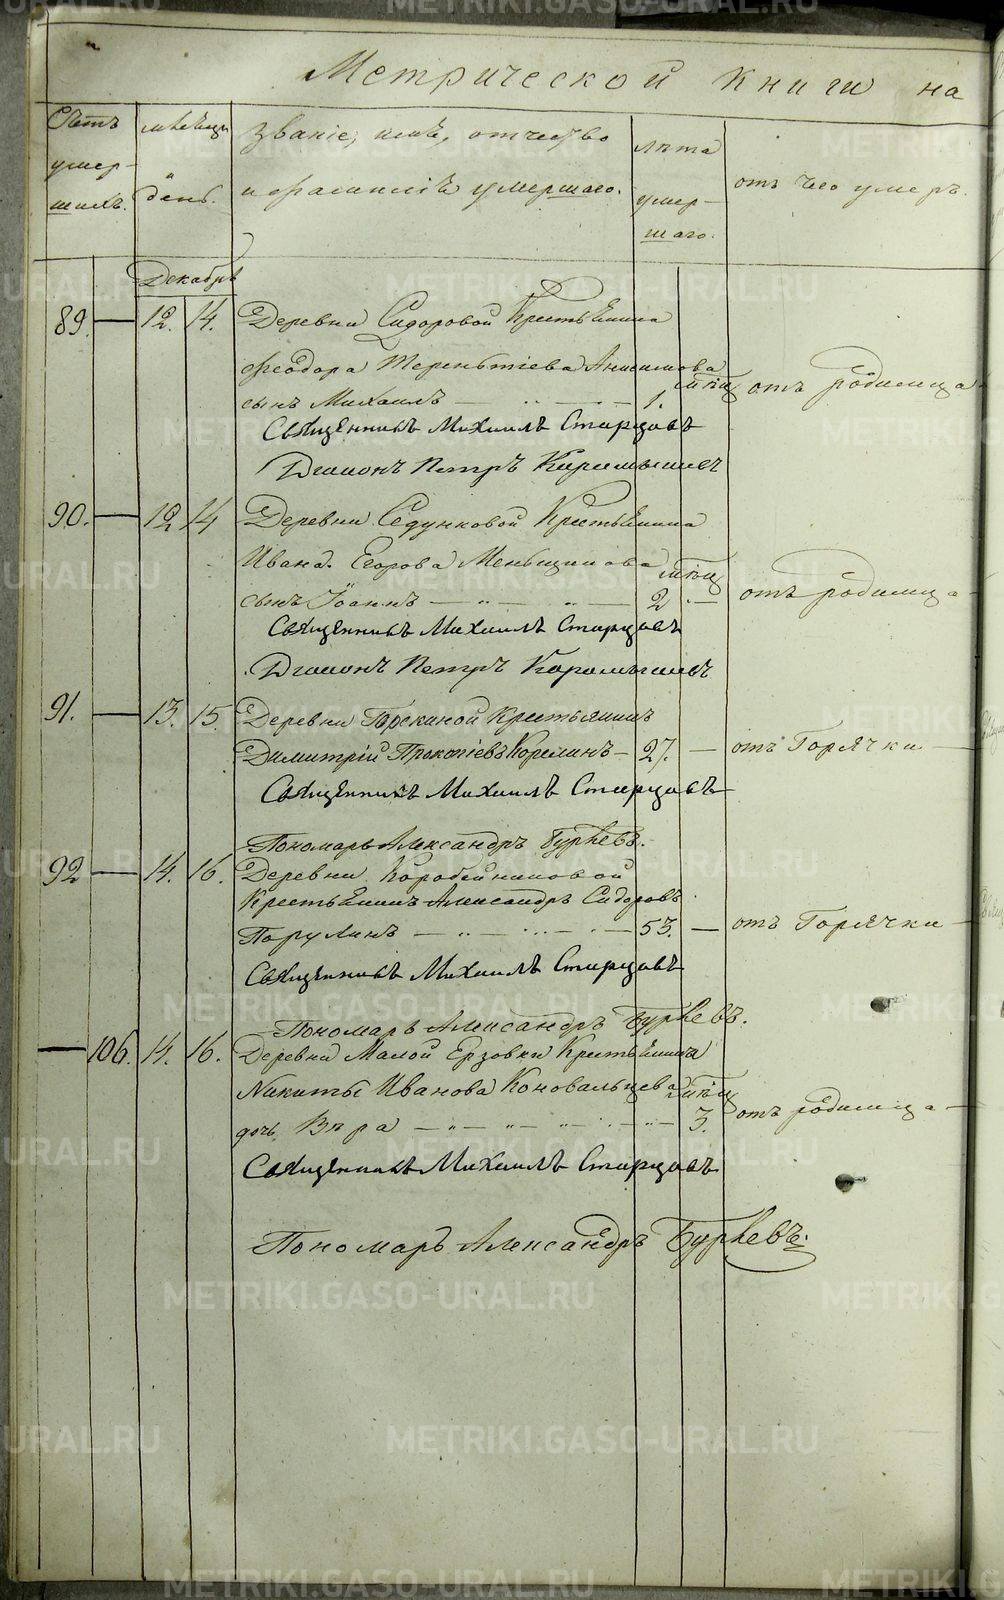 Метрической книги на
Счетъ умер-шихъ.
мѣсяцъ и день.
Званіе, имя, отчество
и фамилія умершаго.
лѣта умер-шаго.
отъ чего умеръ.
Декабрь
89 — 12. 14. Деревни Сидоровой Крестьянина
Феодора Терентіева Анисимова
сынъ Михаилъ — 1. мѣсц отъ родимца
Священникъ Михаилъ Старцовъ
Діаконъ Петръ
90. — 12 14 Деревни Седунковой Крестьянина
Ивана Егорова Меньщикова
сынъ Іоаннъ — " — " — 2 мѣсц — отъ родимца —
Священникъ Михаилъ Старцовъ
Діаконъ Петръ
91. — 13. 15. Деревни Крестьянинъ
Димитрій Прокопіевъ Корелинъ — 27. — отъ Горячки —
Священникъ Михаилъ Старцовъ
Пономарь Александръ
92 — 14. 16. Деревни Коробейниковой
Крестьянинъ Александръ Сидоровъ
Порулинъ — " — 53. — отъ Горячки —
Священникъ Михаилъ Старцовъ
Пономарь Александръ
— 106. 14. 16. Деревни Малой Ерзовки Крестьянина
Никиты Иванова Коновальцева
дочь Вѣра — " — " — 3. мѣсц отъ родимца —
Священникъ Михаилъ Старцовъ
Пономарь Александръ
METRIKI.GASO-URAL.RU